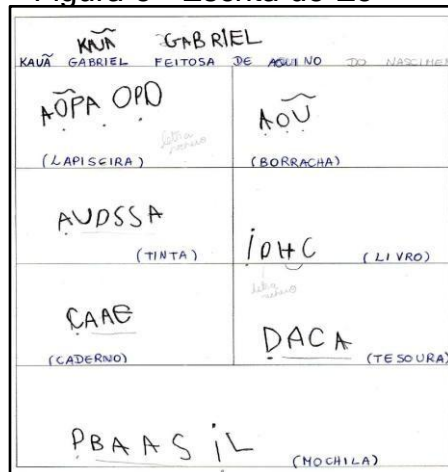 KAUÃ GABRIEL
KAUÃ GABRIEL FEITOSA DE AQUINO DO NASCIMEN
AÕPA OPD
(LAPISEIRA)
AOŨ
(BORRACHA)
AUDSSA
(TINTA)
IDHC
(LIVRO)
CAAE
(CADERNO)
DACA
(TESOURA)
PBAASiL
(MOCHILA)